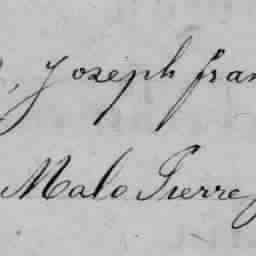 , Joseph fran
Malo Pierre